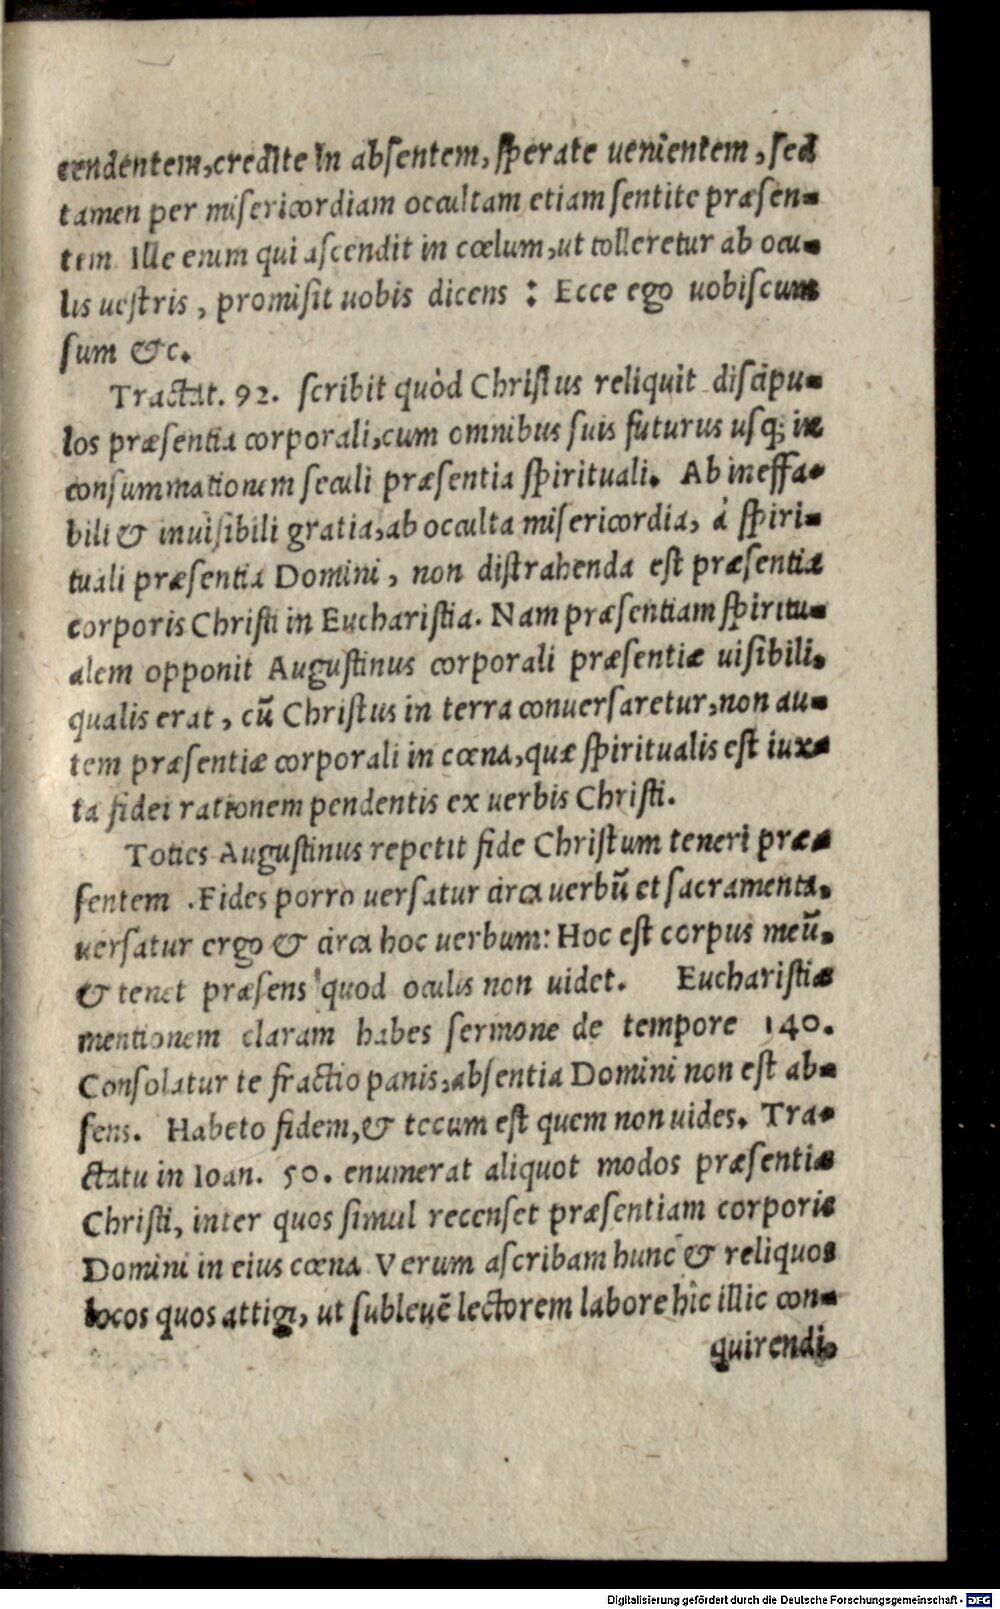 cendentem, credite in absentem, sperate uenientem, sed
tamen per misericordiam occultam etiam sentite præsen-
tem Ille enim qui ascendit in cœlum, ut tolleretur ab ocu-
lis uestris, promisit uobis dicens : Ecce ego uobiscum
sum &c.
Tractat. 92. scribit quòd Christus reliquit discipu-
los præsentia corporali, cum omnibus suis futurus usq; in
consummationem seculi præsentia spirituali. Ab ineffa-
bili & inuisibili gratia, ab occulta misericordia, à spiri-
tuali præsentia Domini, non distrahenda est præsentia
corporis Christi in Eucharistia. Nam præsentiam spiritu-
alem opponit Augustinus corporali præsentiæ uisibili,
qualis erat, cū Christus in terra conuersaretur, non au-
tem præsentiæ corporali in cœna, quæ spiritualis est iux-
ta fidei rationem pendentis ex uerbis Christi.
Toties Augustinus repetit fide Christum teneri præ-
sentem . Fides porro uersatur circa uerbū et sacramenta,
uersatur ergo & circa hoc uerbum: Hoc est corpus meū,
& tenet præsens quod oculis non uidet. Eucharistiæ
mentionem claram habes sermone de tempore 140.
Consolatur te fractio panis, absentia Domini non est ab-
sens. Habeto fidem, & tecum est quem non uides. Tra-
ctatu in Ioan. 50. enumerat aliquot modos præsentiæ
Christi, inter quos simul recenset præsentiam corporis
Domini in eius cœna Verum ascribam hunc & reliquos
locos quos attigi, ut subleuē lectorem labore hîc illic con-
quirendi,
Digitalisierung gefördert durch die Deutsche Forschungsgemeinschaft - DFG